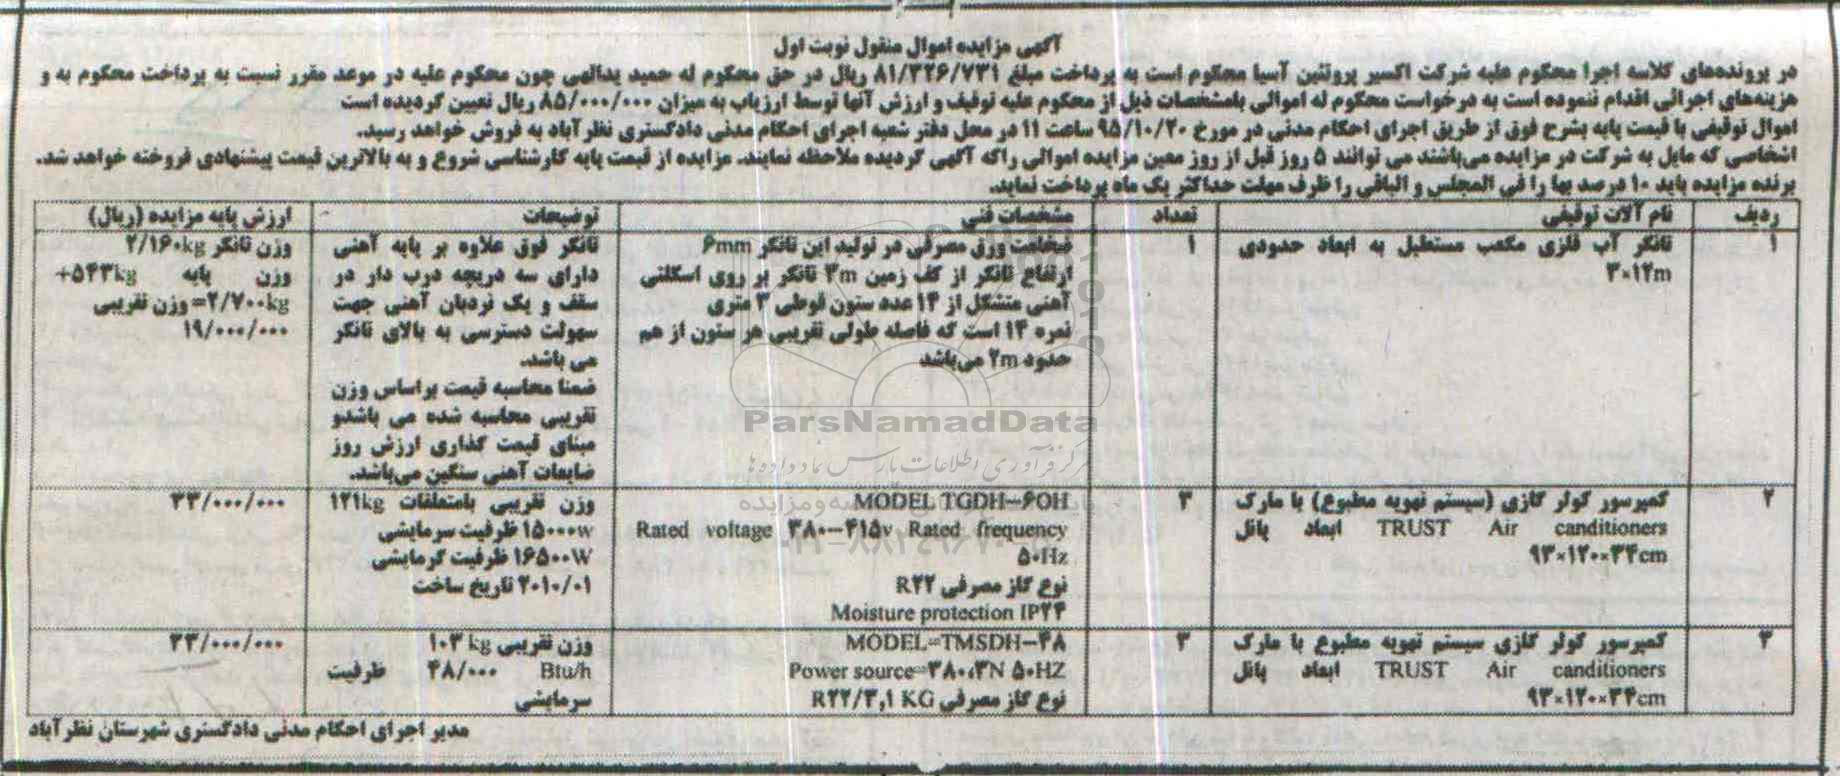 آگهی مزایده اموال منقول نوبت اول
در پرونده‌های کلاسه اجرا محکوم علیه شرکت اکسیر پروتئین آسیا محکوم است به پرداخت مبلغ ۸۱/۳۲۶/۷۳۱ ریال در حق محکوم له حمید یدالهی چون محکوم علیه در موعد مقرر نسبت به پرداخت محکوم به و
هزینه‌های اجرائی اقدام ننموده است به درخواست محکوم له اموالی بامشخصات ذیل از محکوم علیه توقیف و ارزش آنها توسط ارزیاب به میزان ۸۵/۰۰۰/۰۰۰ ریال تعیین گردیده است
اموال توقیفی با قیمت پایه بشرح فوق از طریق اجرای احکام مدنی در مورخ ۹۵/۱۰/۲۰ ساعت ۱۱ در محل دفتر شعبه اجرای احکام مدنی دادگستری نظرآباد به فروش خواهد رسید.
اشخاصی که مایل به شرکت در مزایده می‌باشند می توانند ۵ روز قبل از روز معین مزایده اموالی راکه آگهی گردیده ملاحظه نمایند. مزایده از قیمت پایه کارشناسی شروع و به بالاترین قیمت پیشنهادی فروخته خواهد شد.
برنده مزایده باید ۱۰ درصد بها را فی المجلس و الباقی را ظرف مهلت حداکثر یک ماه پرداخت نماید.
ردیف نام آلات توقیفی تعداد مشخصات فنی توضیحات ارزش پایه مزایده (ریال)
۱ تانکر آب فلزی مکعب مستطیل به ابعاد حدودی ۱ ضخامت ورق مصرفی در تولید این تانکر ۶mm تانکر فوق علاوه بر پایه آهنی وزن تانکر ۲/۱۶۰kg
۳×۱۲m ارتفاع تانکر از کف زمین ۳m تانکر بر روی اسکلتی دارای سه دریچه درب دار در وزن پایه ۵۴۳kg+
آهنی متشکل از ۱۴ عدد ستون قوطی ۳ متری سقف و یک نردبان آهنی جهت ۲/۷۰۰kg= وزن تقریبی
نمره ۱۴ است که فاصله طولی تقریبی هر ستون از هم سهولت دسترسی به بالای تانکر ۱۹/۰۰۰/۰۰۰
حدود ۲m می‌باشد می باشد.
ضمنا محاسبه قیمت براساس وزن
تقریبی محاسبه شده می باشدو
مبنای قیمت گذاری ارزش روز
ضایعات آهنی سنگین می‌باشد.
۲ کمپرسور کولر گازی (سیستم تهویه مطبوع) با مارک ۳ MODEL TGDH-۶OH وزن تقریبی بامتعلقات ۱۲۱kg ۳۳/۰۰۰/۰۰۰
TRUST Air canditioners ابعاد پانل Rated voltage ۳۸۰-۴۱۵v Rated frequency ۱۵۰۰۰w ظرفیت سرمایشی
۹۳×۱۲۰×۳۴cm ۵۰Hz ۱۶۵۰۰W ظرفیت گرمایشی
نوع گاز مصرفی R۲۲ ۲۰۱۰/۰۱ تاریخ ساخت
Moisture protection IP۲۴
۳ کمپرسور کولر گازی سیستم تهویه مطبوع با مارک ۳ MODEL=TMSDH-۴۸ وزن تقریبی ۱۰۳ kg ۳۳/۰۰۰/۰۰۰
TRUST Air canditioners ابعاد پانل Power source=۳۸۰،۳N ۵۰HZ ۴۸/۰۰۰ Btu/h ظرفیت
۹۳×۱۲۰×۳۴cm نوع گاز مصرفی R۲۲/۳,۱ KG سرمایشی
مدیر اجرای احکام مدنی دادگستری شهرستان نظرآباد
ParsNamadData
مرکز فرآوری اطلاعات پارس نماد داده ها